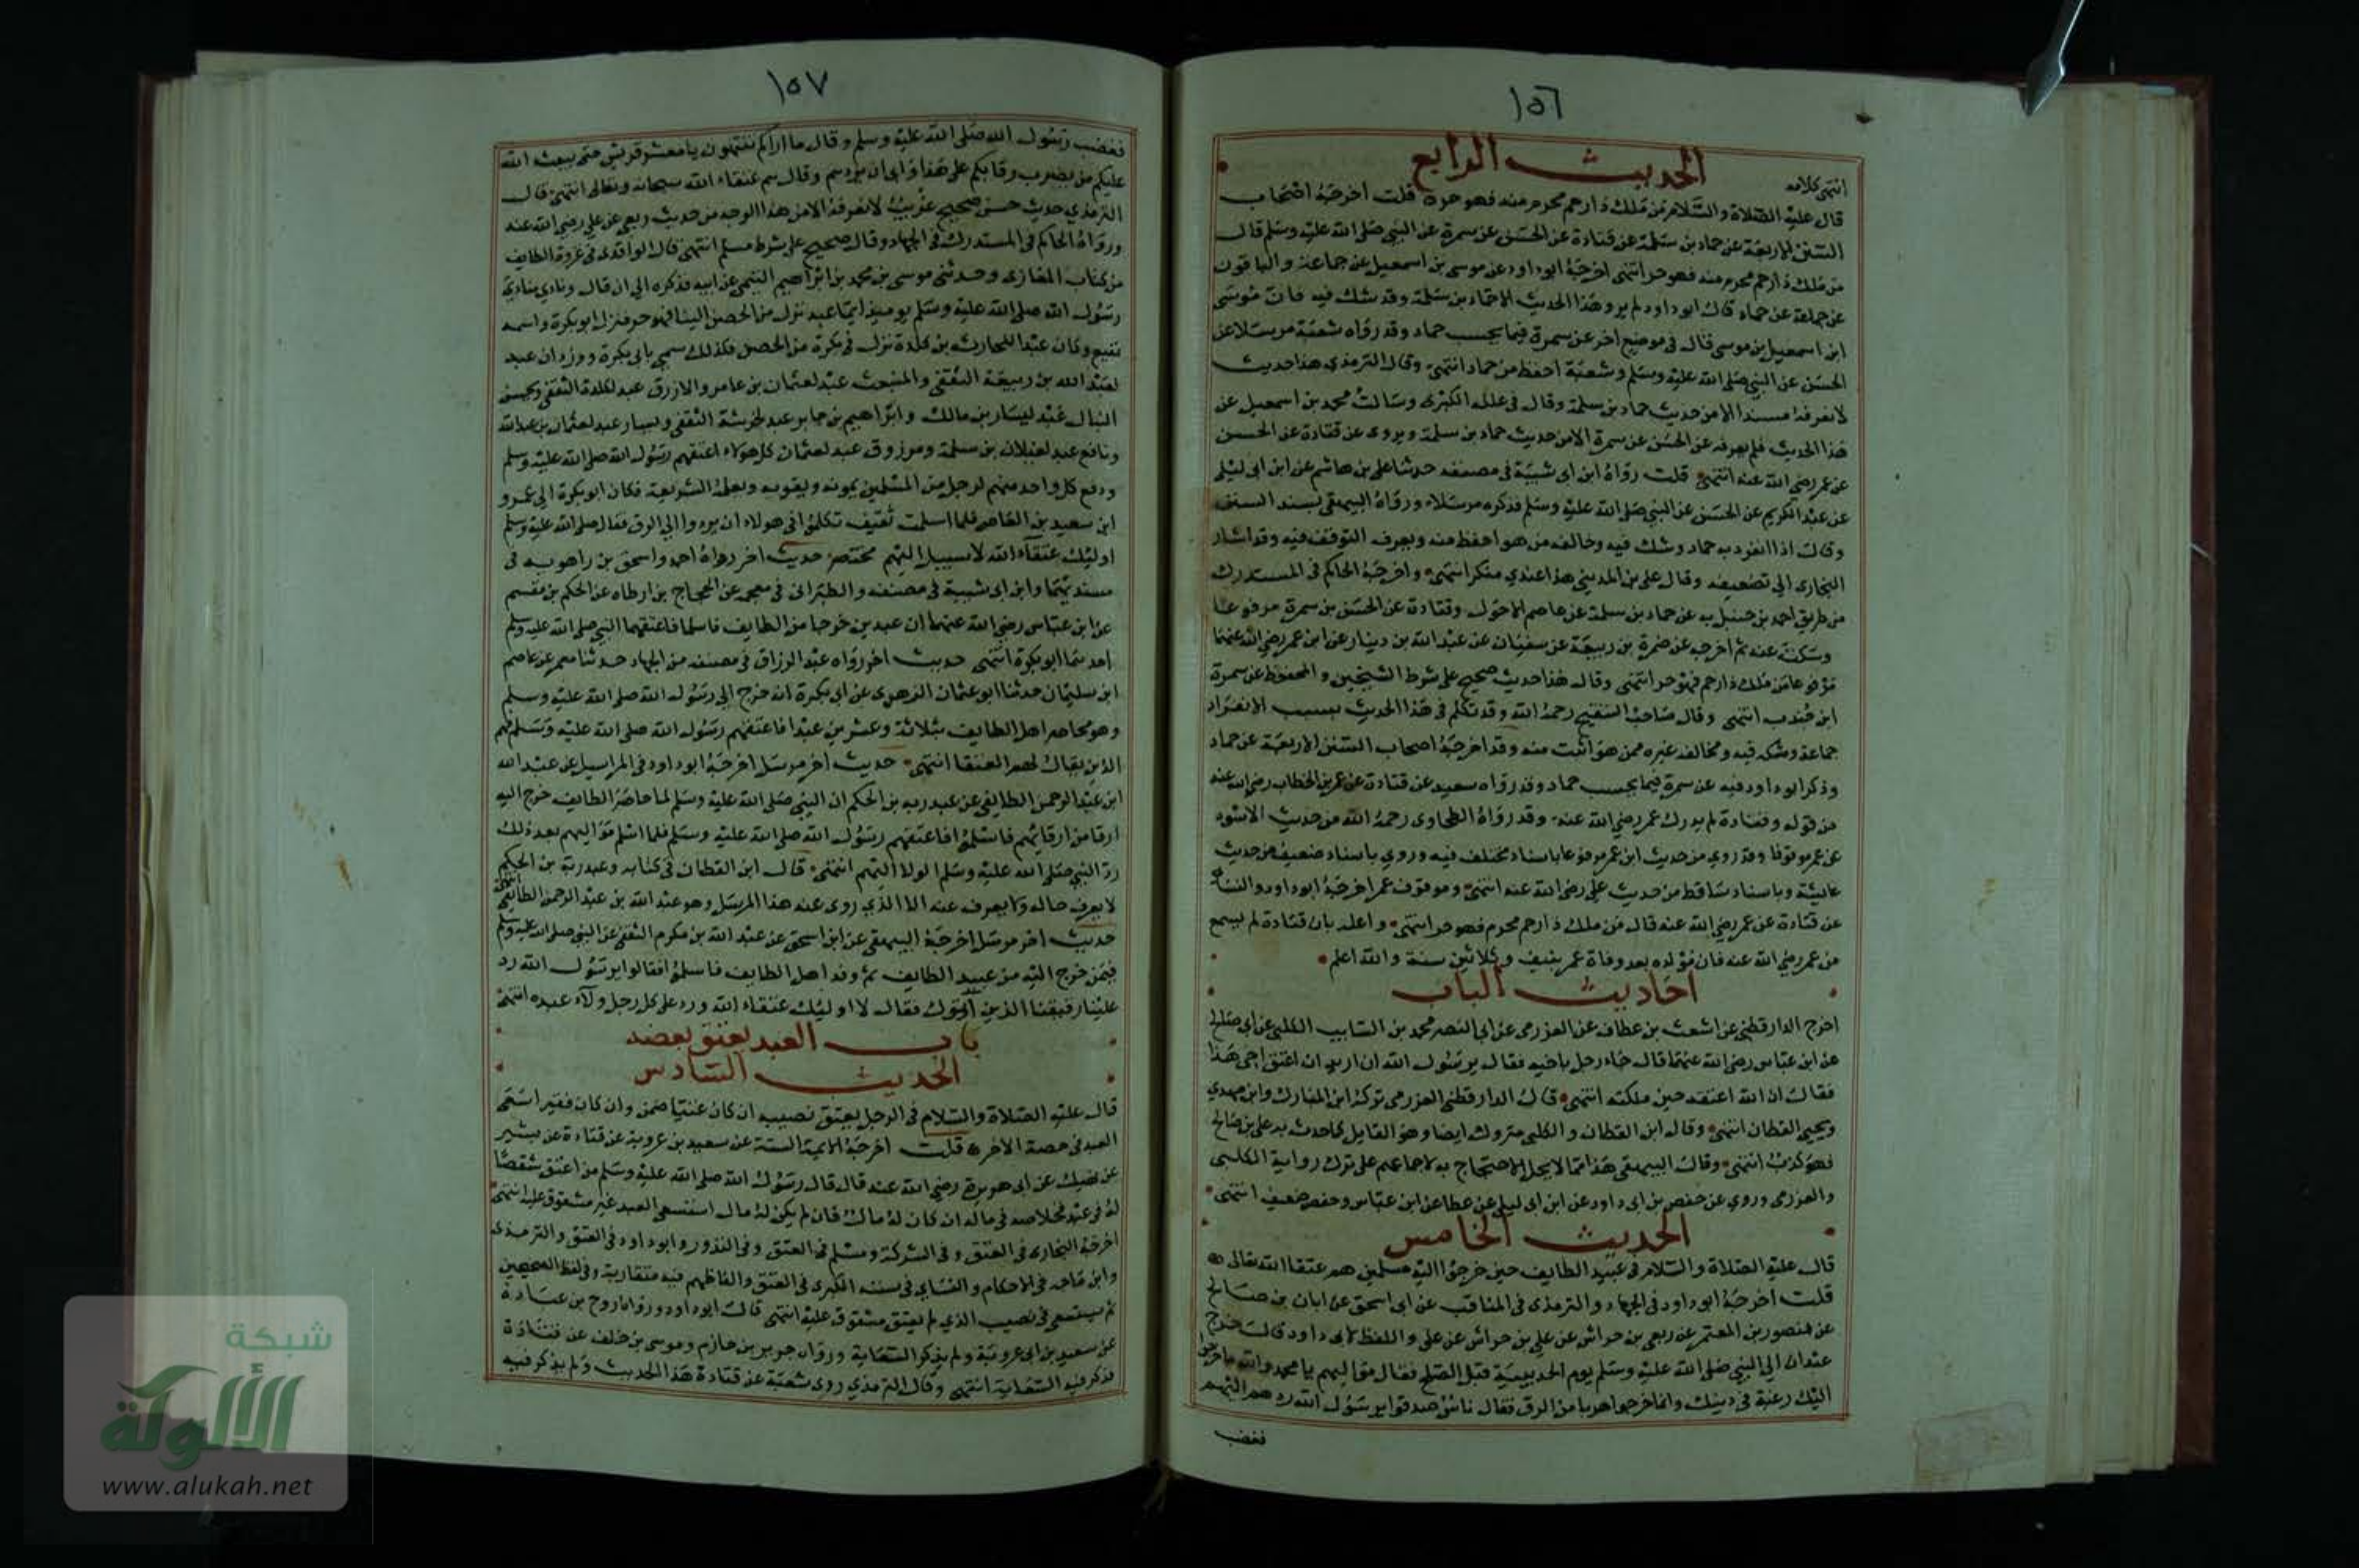 ١٥٦
انتهى كلامه الحديث الرابع
قال عليه الصلاة والسلام من ملك ذا رحم محرم منه فهو حر ه قلت اخرجه اصحاب
السنن الاربعة عن حماد بن سلمة عن قتادة عن الحسن عن سمرة عن النبي صلى الله عليه وسلم قال
من ملك ذا رحم محرم منه فهو حر انتهى اخرجه ابوداود عن موسى بن اسمعيل عن جماعة والباقون
عن جماعة عن حماد قال ابو داود لم يرو هذا الحديث الا حماد بن سلمة وقد شك فيه فان موسى
ابن اسمعيل بن موسى قال في موضع اخر عن سمرة فيما يحسب حماد وقد رواه شعبة مرسلا عن
الحسن عن النبي صلى الله عليه وسلم وشعبة احفظ من حماد انتهى وقال الترمذي هذا حديث
لا نعرفه مسندا الا من حديث حماد بن سلمة وقال في علله الكبرى وسالت محمد بن اسمعيل عن
هذا الحديث فلم يعرفه عن الحسن عن سمرة الا من حديث حماد بن سلمة ويروى عن قتادة عن الحسن
عن عمر رضي الله عنه انتهى قلت رواه ابن ابى شيبة في مصنفه حدثنا على بن هاشم عن ابن ابى ليلى
عن عبد الكريم عن الحسن عن النبي صلى الله عليه وسلم فذكره مرسلا ورواه البيهقى بسند السنن
وقال اذا انفرد به حماد وشك فيه وخالفه من هو احفظ منه وجب التوقف فيه وقد اشار
البخارى الى تضعيفه وقال على بن المديني هذا عندي منكر انتهى واخرجه الحاكم في المستدرك
من طريق احمد بن حنبل به عن حماد بن سلمة عن عاصم الاحول وقتادة عن الحسن بن سمرة مرفوعا
وسكت عنه ثم اخرجه عن ضمرة بن ربيعة عن سفيان عن عبد الله بن دينار عن ابن عمر رضي الله عنهما
مرفوعا من ملك ذا رحم فهو حر انتهى وقال هذا حديث صحيح على شرط الشيخين والمحفوظ عن سمرة
ابن جندب انتهى وقال صاحب التنقيح رحمه الله وقد تكلم في هذا الحديث بسبب الانفراد
جماعة وشك فيه ومخالفه غيره ممن هو اثبت منه وقد اخرجه اصحاب السنن الاربعة عن حماد
وذكر ابو داود فيه عن سمرة فيما يحسب حماد وقد رواه سعيد عن قتادة عن عمر بن الخطاب رضي الله عنه
من قوله وقتادة لم يدرك عمر رضي الله عنه وقد رواه الطحاوى رحمه الله من حديث الاسود
عن عمر موقوفا وقد روي من حديث ابن عمر مرفوعا باسناد مختلف فيه وروي باسناد ضعيف من حديث
عايشة وباسناد ساقط من حديث على رضي الله عنه انتهى وموقوف عمر اخرجه ابو داود والنسائ
عن قتادة عن عمر رضي الله عنه قال من ملك ذا رحم محرم فهو حر انتهى واعله بان قتادة لم يسمع
من عمر رضي الله عنه فان مولده بعد وفاة عمر بنيف وثلاثين سنة والله اعلم
احاديث الباب
اخرج الدارقطني عن اشعث بن عطاف عن العزرمى عن ابى النصر محمد بن السايب الكلبي عن ابى صالح
عن ابن عباس رضي الله عنهما قال جاء رجل باخيه فقال يرسول الله ان اريد ان اعتق اخى هذا
فقال ان الله اعتقه حين ملكته انتهى قال الدارقطني العزرمى تركه ابن المبارك وابن مهدي
ويحيى القطان انتهى وقال ابن القطان والكلبى متروك ايضا وهو القايل كلما حدث به على بن صالح
فهو كذب انتهى وقال البيهقى هذا مما لا يحل الاحتجاج به لاجماعهم على ترك رواية الكلبى
والعزرمى وروي عن حفص بن ابى داود عن ابن ابى ليلى عن عطا عن ابن عباس وحفص ضعيف انتهى
الحديث الخامس
قال عليه الصلاة والسلام في عبيد الطايف حين خرجوا اليه مسلمين هم عتقا الله تعالى ه
قلت اخرجه ابو داود في الجهاد والترمذى في المناقب عن ابى اسحق عن ابان بن صالح
عن منصور بن المعتمر عن ربعي بن حراش عن علي بن حراش عن على واللفظ لابى داود قال خرج
عبدان الى النبي صلى الله عليه وسلم يوم الحديبية قبل الصلح فقال مواليهم يا محمد والله ما خرجوا
اليك رغبة في دينك وانما خرجوا هربا من الرق فقال ناس صدقوا يرسول الله ردهم اليهم
فغضب
١٥٧
فغضب رسول الله صلى الله عليه وسلم وقال ما اراكم تنتهون يا معشر قريش حتى يبعث الله
عليكم من يضرب رقابكم على هذا وابى ان يردهم وقال هم عتقاء الله سبحانه وتعالى انتهى قال
الترمذي حديث حسن صحيح غريب لا نعرفه الا من هذا الوجه من حديث ربعي عن علي رضي الله عنه
ورواه الحاكم في المستدرك في الجهاد وقال صحيح على شرط مسلم انتهى قال الواقدى في غزوة الطايف
من كتاب المغازى وحدثنى موسى بن محمد بن ابراهيم التيمي عن ابيه فذكره الى ان قال ونادى منادي
رسول الله صلى الله عليه وسلم يوميذ ايما عبد نزل من الحصن الينا فهو حر فنزل ابو بكرة واسمه
نفيع وكان عبدا للحارث بن كلدة نزل في بكرة من الحصن فلذلك سمي بابى بكرة ووردان عبد
لعبد الله بن ربيعة الثقفي والمنبعث عبد لعثمان بن عامر والازرق عبد لكلدة الثقفي ويحنس
النبال عبد ليسار بن مالك وابراهيم بن جابر عبد لخرشة الثقفي ويسار عبد لعثمان بن عبد الله
ونافع عبد لغيلان بن سلمة ومرزوق عبد لعثمان كل هولاء اعتقهم رسول الله صلى الله عليه وسلم
ودفع كل واحد منهم لرجل من المسلمين يمونه ويقوبه ويعلمه الشريعة فكان ابو بكرة الى عمرو
ابن سعيد بن العاص فلما اسلمت ثقيف تكلموا في هولاء ان يردوا الى الرق فقال صلى الله عليه وسلم
اوليك عتقاء الله لا سبيل اليهم مختصر حديث اخر رواه احمد واسحق بن راهويه في
مسنديهما وابن ابى شيبة في مصنفه والطبرانى في معجمه عن الحجاج بن ارطاه عن الحكم بن مقسم
عن ابن عباس رضي الله عنهما ان عبدين خرجا من الطايف فاسلما فاعتقهما النبي صلى الله عليه وسلم
احدهما ابو بكرة انتهى حديث اخر رواه عبد الرزاق في مصنفه من الجهاد حدثنا معمر عن عاصم
ابن سليمان حدثنا ابو عثمان النهدى عن ابى بكرة انه خرج الى رسول الله صلى الله عليه وسلم
وهو محاصر اهل الطايف بثلاثة وعشرين عبدا فاعتقهم رسول الله صلى الله عليه وسلم فهم
الذين يقال لهم العتقا انتهى حديث اخر مرسل اخرجه ابو داود في المراسيل عن عبد الله
ابن عبد الرحمن الطايفي عن عبد ربه بن الحكم ان النبي صلى الله عليه وسلم لما حاصر الطايف خرج اليه
ارقا من ارقايهم فاسلموا فاعتقهم رسول الله صلى الله عليه وسلم فلما اسلم مواليهم بعد ذلك
رد النبي صلى الله عليه وسلم الولا اليهم انتهى قال ابن القطان في كتابه وعبد ربه بن الحكم
لا يعرف حاله ولا يعرف عنه الا الذي روى عنه هذا المرسل وهو عبد الله بن عبد الرحمن الطايفي انتهى
حديث اخر مرسل اخرجه البيهقى عن ابن اسحق عن عبد الله بن مكرم الثقفي عن النبي صلى الله عليه وسلم
فيمن خرج اليه من عبيد الطايف ثم وفد اهل الطايف فاسلموا فقالوا يرسول الله رد
علينا رقيقنا الذين اتوك فقال لا اوليك عتقاء الله ورد على كل رجل ولاء عبده انتهى
باب العبد يعتق بعضه
الحديث السادس
قال عليه الصلاة والسلام في الرجل يعتق نصيبه ان كان غنيا ضمن وان كان فقيرا سعى
العبد في حصة الاخر ه قلت اخرجه الايمة الستة عن سعيد بن عروبة عن قتادة عن بشير
عن نهيك عن ابى هريرة رضي الله عنه قال قال رسول الله صلى الله عليه وسلم من اعتق شقصا
له في عبد فخلاصه في ماله ان كان له مال فان لم يكن له مال استسعى العبد غير مشقوق عليه انتهى
اخرجه البخارى في العتق وفي الشركة ومسلم في العتق وفي النذور وابو داود في العتق والترمذى
وابن ماجه في الاحكام والنساي في سننه الكبرى في العتق والفاظهم فيه متقاربة وفي لفظ الصحيحين
ثم يستسعى في نصيب الذي لم يعتق مشقوق عليه انتهى قال ابو داود ورواه روح بن عبادة
عن سعيد بن ابى عروبة ولم يذكر السعاية ورواه جرير بن حازم وموسى بن خلف عن قتادة
فذكر فيه السعاية انتهى وقال الترمذي روى شعبة عن قتادة هذا الحديث ولم يذكر فيه
شبكة
الألوكة
www.alukah.net